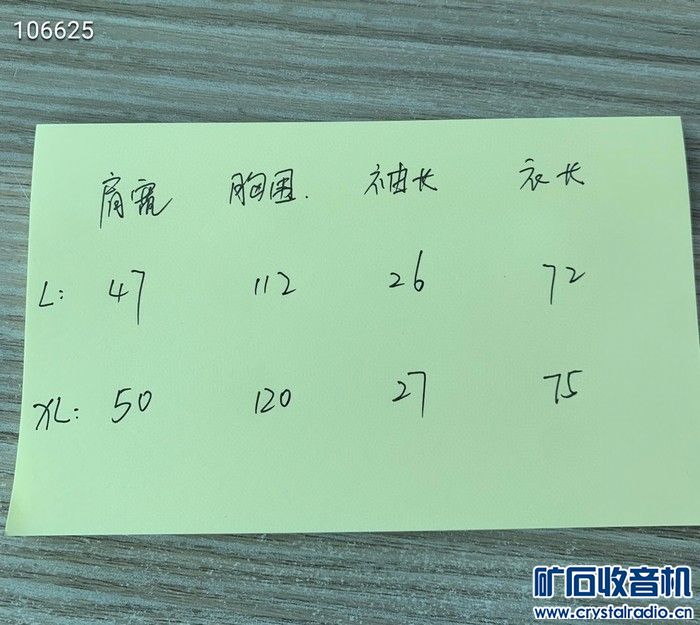 106625
肩宽 胸围. 袖长 衣长
L: 47 112 26 72
XL: 50 120 27 75
矿石收音机
www.crystalradio.cn